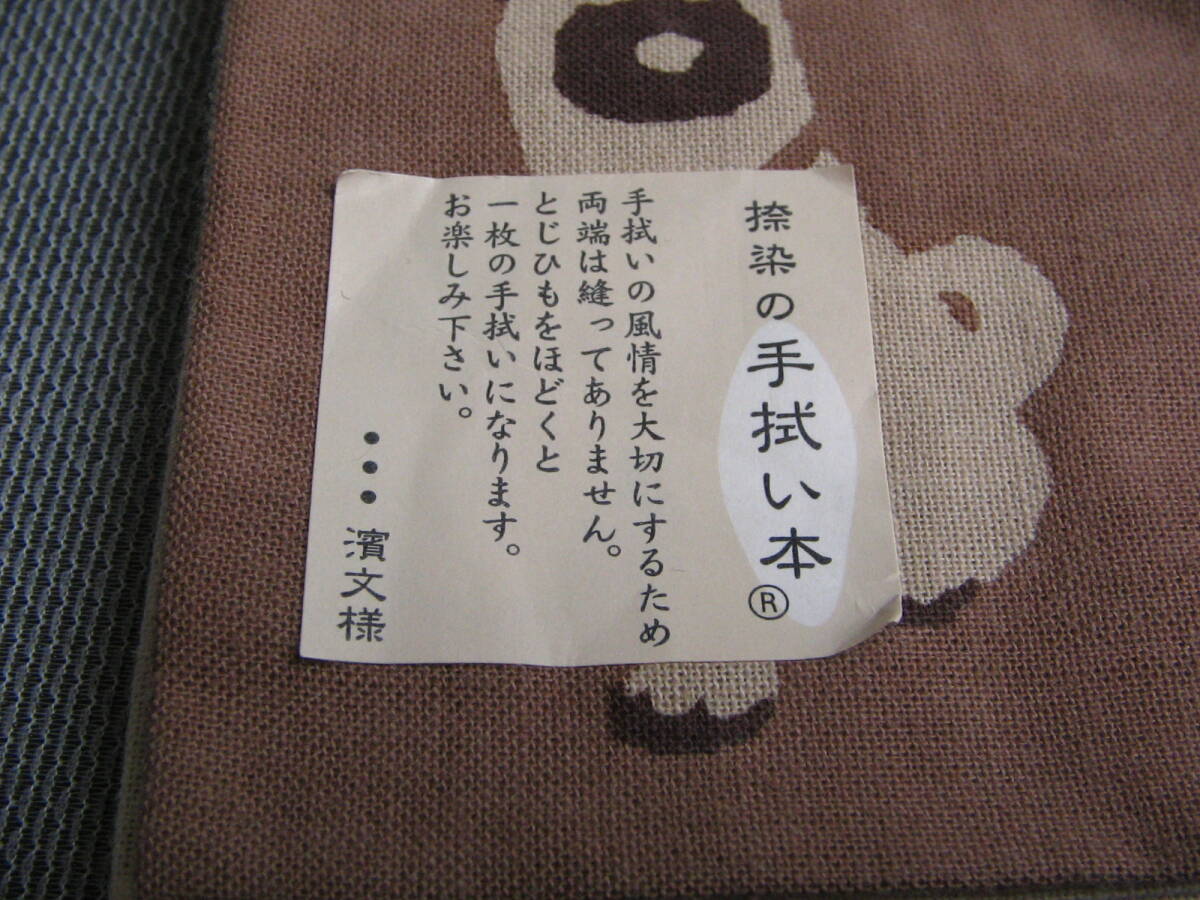 捺染の手拭い本®
手拭いの風情を大切にするため
両端は縫ってありません。
とじひもをほどくと
一枚の手拭いになります。
お楽しみ下さい。
●●●濱文様